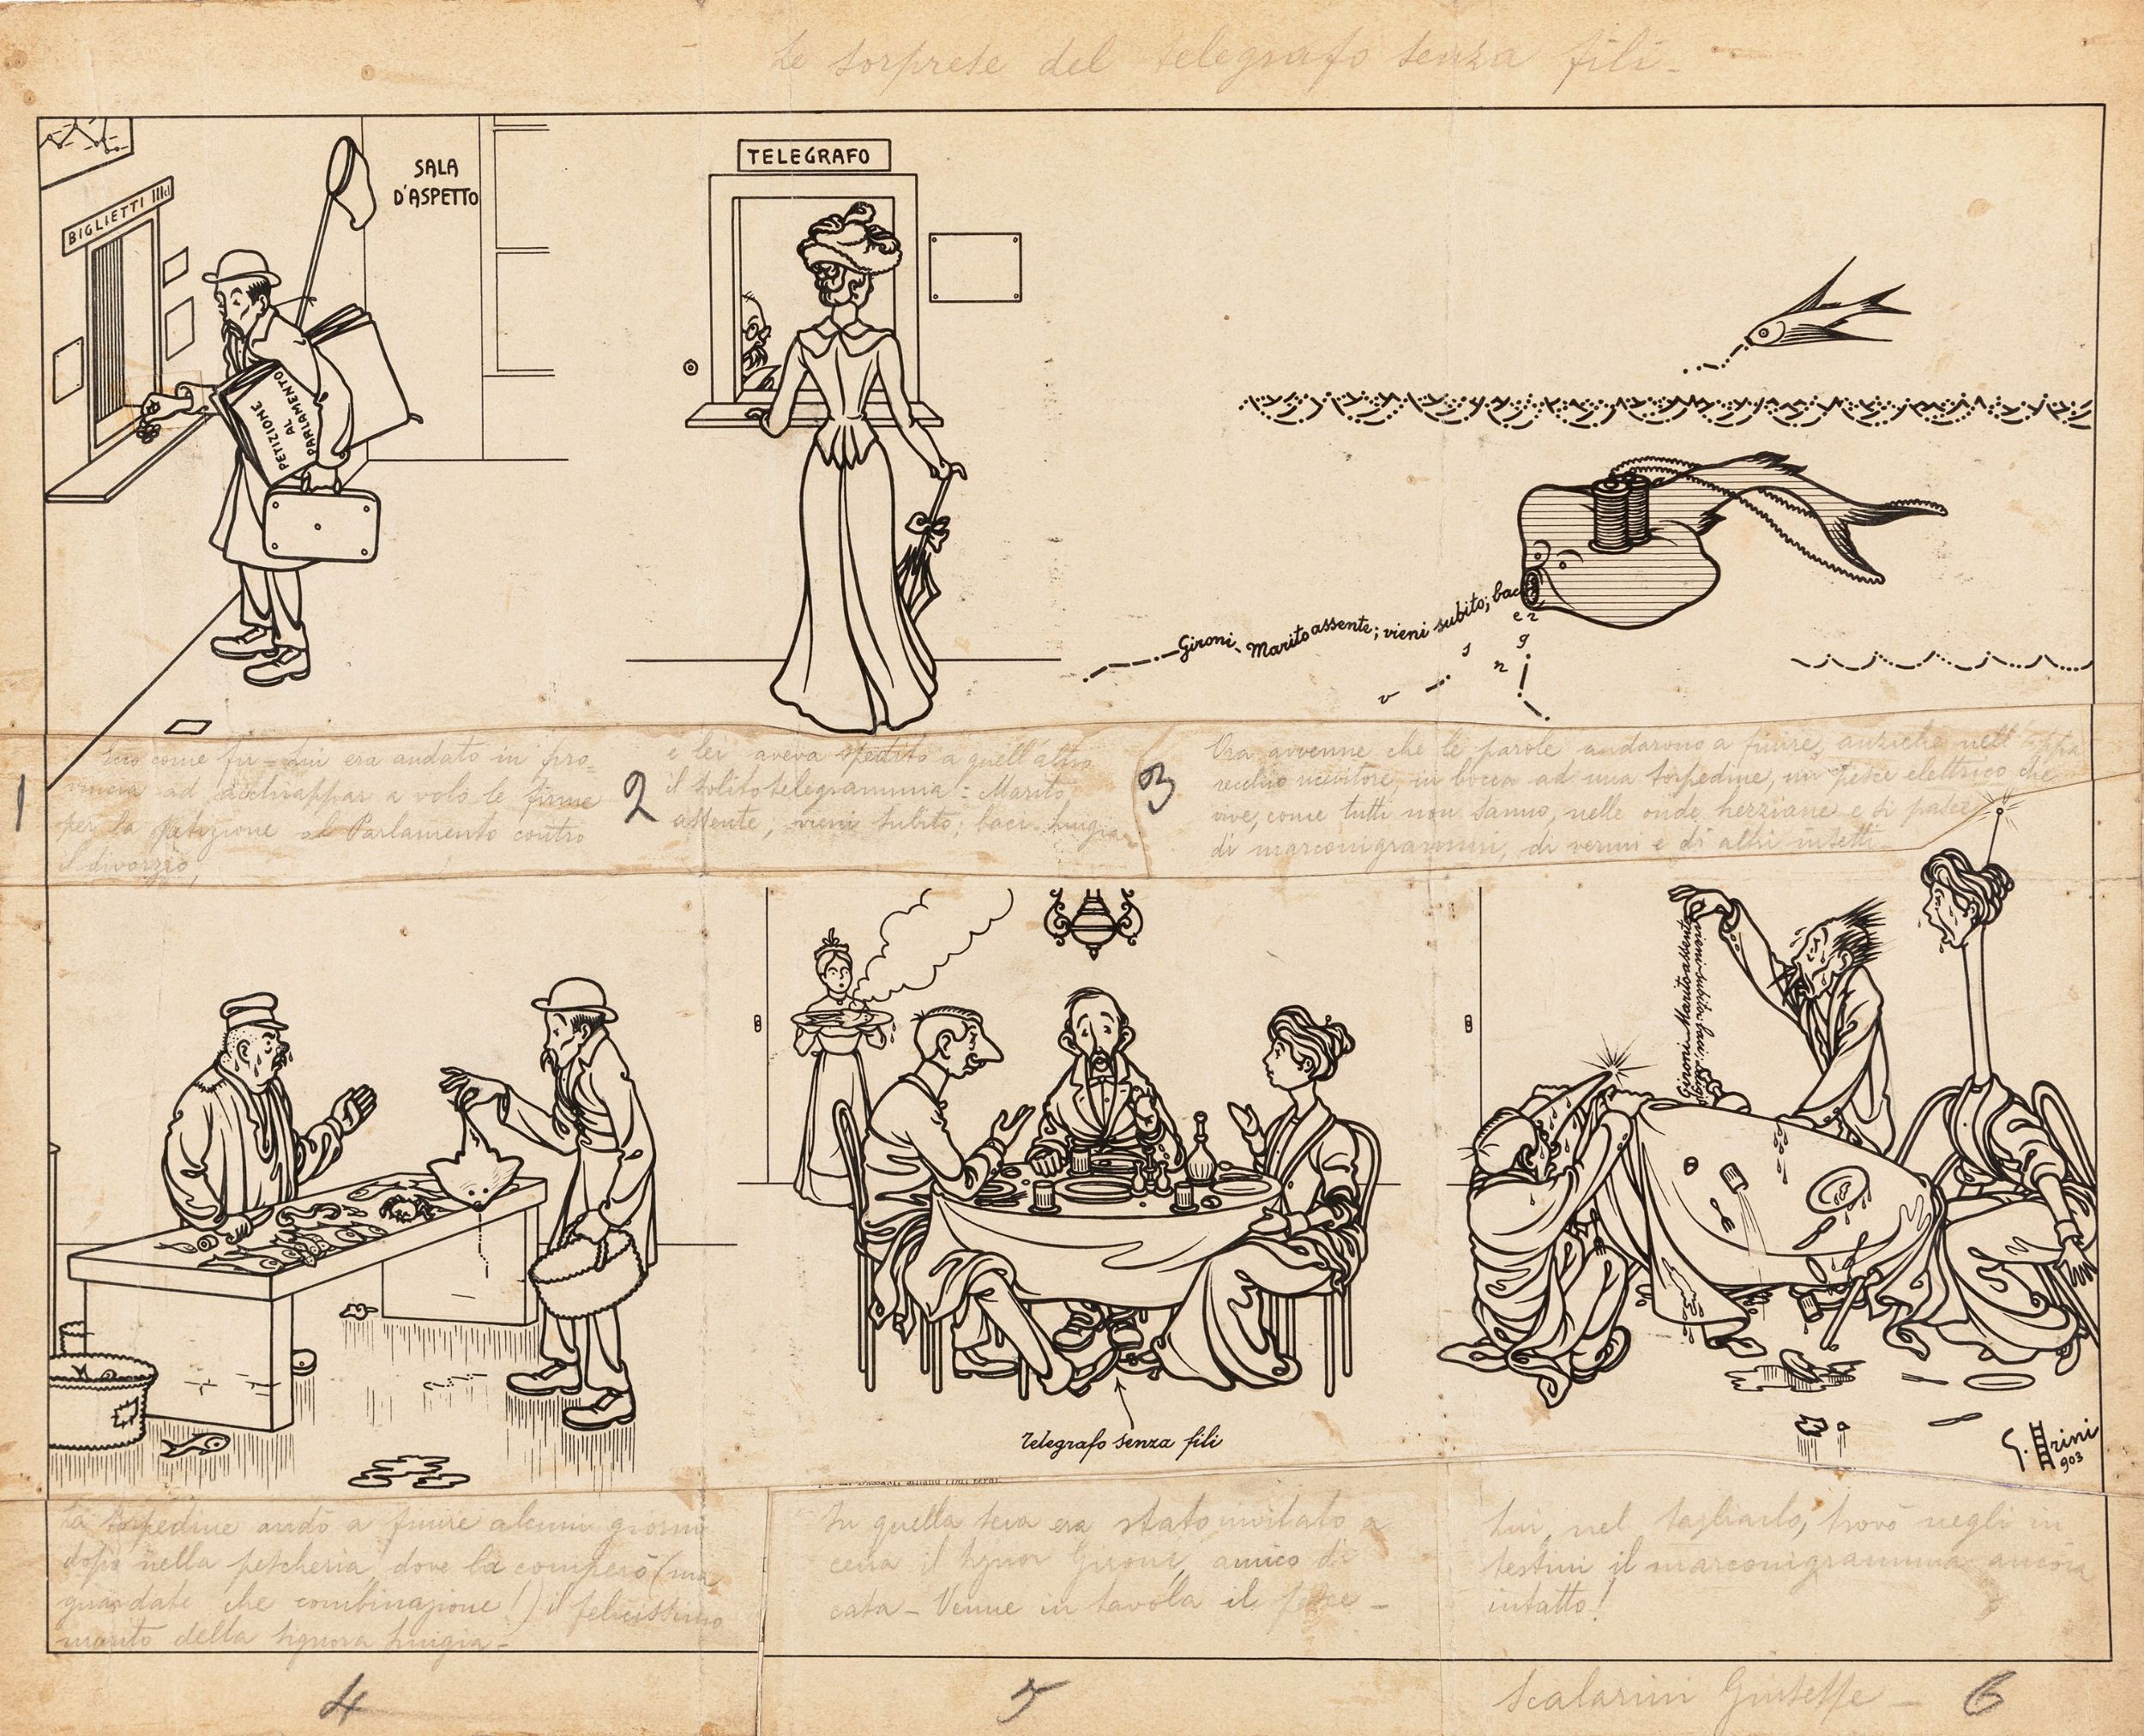 Le sorprese del telegrafo senza fili -
BIGLIETTI IIIcl
SALA
D'ASPETTO
PETIZIONE
AL
PARLAMENTO
TELEGRAFO
Gironi - Marito assente; vieni subito; baci
1
come fu - Lui era andato in pro-
vincia ad acchiappar a volo le firme
per la petizione al Parlamento contro
il divorzio,
2
e lei aveva spedito a quell'altro
il solito telegramma: Marito
assente, vieni subito; baci. Luigia
3
Ora avvenne che le parole andarono a finire, anziché nell'appa
recchio ricevitore, in bocca ad una torpedine, un pesce elettrico che
vive, come tutti non sanno, nelle onde herziane e si pasce
di marconigrammi, di vermi e di altri insetti -
Gironi - Marito assente
vieni subito; baci
Telegrafo senza fili
G. rini
903
La torpedine andò a finire alcuni giorni
dopo nella pescheria, dove la comperò (ma
guardate che combinazione!) il felicissimo
marito della signora Luigia -
4
In quella sera era stato invitato a
cena il signor Gironi, amico di
casa - Venne in tavola il pesce -
5
Lui, nel tagliarlo, trovò negli in
testini il marconigramma ancora
intatto!
Scalarini Giuseppe -
6